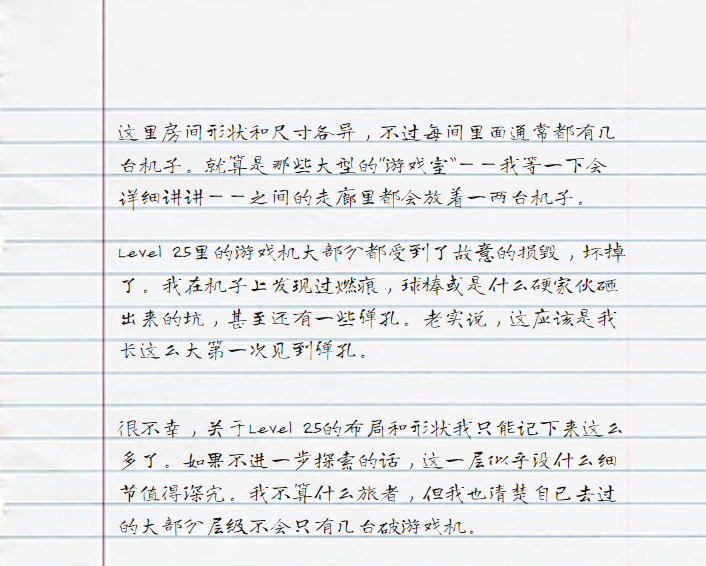 这里房间形状和尺寸各异，不过每间里面通常都有几
台机子。就算是那些大型的"游戏室"——我等一下会
详细讲讲——之间的走廊里都会放着一两台机子。
Level 25里的游戏机大部分都受到了故意的损毁，坏掉
了。我在机子上发现过燃痕，球棒或是什么硬家伙砸
出来的坑，甚至还有一些弹孔。老实说，这应该是我
长这么大第一次见到弹孔。
很不幸，关于Level 25的布局和形状我只能记下来这么
多了。如果不进一步探索的话，这一层似乎没什么细
节值得深究。我不算什么旅者，但我也清楚自己去过
的大部分层级不会只有几台破游戏机。